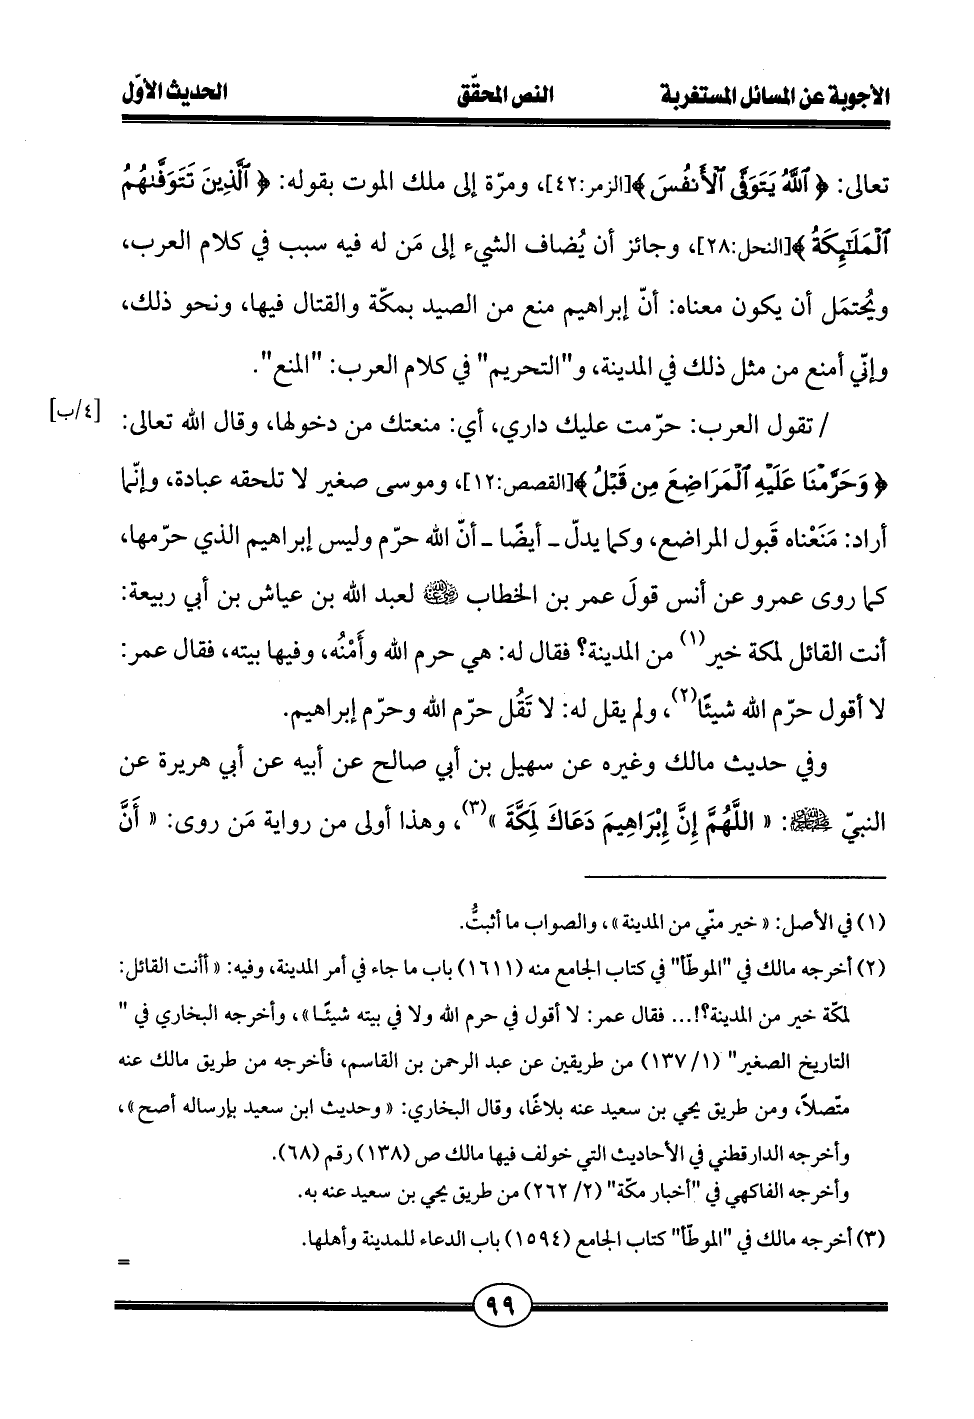 الأجوبة عن المسائل المستغربة النص المحقّق الحديث الأوّل
تعالى: ﴿ ٱللَّهُ يَتَوَفَّى ٱلْأَنفُسَ ﴾[الزمر:٤٢]، ومرّة إلى ملك الموت بقوله: ﴿ ٱلَّذِينَ تَتَوَفَّىٰهُمُ
ٱلْمَلَـٰٓئِكَةُ ﴾[النحل:٢٨]، وجائز أن يُضاف الشيء إلى مَن له فيه سبب في كلام العرب،
ويُحتمَل أن يكون معناه: أنّ إبراهيم منع من الصيد بمكّة والقتال فيها، ونحو ذلك،
وإنّي أمنع من مثل ذلك في المدينة، و"التحريم" في كلام العرب: "المنع".
/ تقول العرب: حرّمت عليك داري، أي: منعتك من دخولها، وقال الله تعالى: [٤/ب]
﴿ وَحَرَّمْنَا عَلَيْهِ ٱلْمَرَاضِعَ مِن قَبْلُ ﴾[القصص:١٢]، وموسى صغير لا تلحقه عبادة، وإنّما
أراد: مَنَعْناه قبول المراضع، وكما يدلّ ـ أيضًا ـ أنّ الله حرّم وليس إبراهيم الذي حرّمها،
كما روى عمرو عن أنس قولَ عمر بن الخطاب رضي الله عنه لعبد الله بن عياش بن أبي ربيعة:
أنت القائل لمكة خير(١) من المدينة؟ فقال له: هي حرم الله وأَمْنُه، وفيها بيته، فقال عمر:
لا أقول حرّم الله شيئًا(٢)، ولم يقل له: لا تَقُل حرّم الله وحرّم إبراهيم.
وفي حديث مالك وغيره عن سهيل بن أبي صالح عن أبيه عن أبي هريرة عن
النبيّ ﷺ: « اللَّهُمَّ إِنَّ إِبْرَاهِيمَ دَعَاكَ لِمَكَّةَ »(٣)، وهذا أولى من رواية مَن روى: « أَنَّ
(١) في الأصل: « خير منّي من المدينة »، والصواب ما أثبتُّ.
(٢) أخرجه مالك في "الموطّأ" في كتاب الجامع منه (١٦١١) باب ما جاء في أمر المدينة، وفيه: « أأنت القائل:
لمكّة خير من المدينة؟!... فقال عمر: لا أقول في حرم الله ولا في بيته شيئًا »، وأخرجه البخاري في "
التاريخ الصغير" (١/ ١٣٧) من طريقين عن عبد الرحمن بن القاسم، فأخرجه من طريق مالك عنه
متّصلاً، ومن طريق يحيي بن سعيد عنه بلاغًا، وقال البخاري: « وحديث ابن سعيد بإرساله أصح »،
وأخرجه الدارقطني في الأحاديث التي خولف فيها مالك ص (١٣٨) رقم (٦٨).
وأخرجه الفاكهي في "أخبار مكّة" (٢/ ٢٦٢) من طريق يحيي بن سعيد عنه به.
(٣) أخرجه مالك في "الموطّأ" كتاب الجامع (١٥٩٤) باب الدعاء للمدينة وأهلها.
=
٩٩